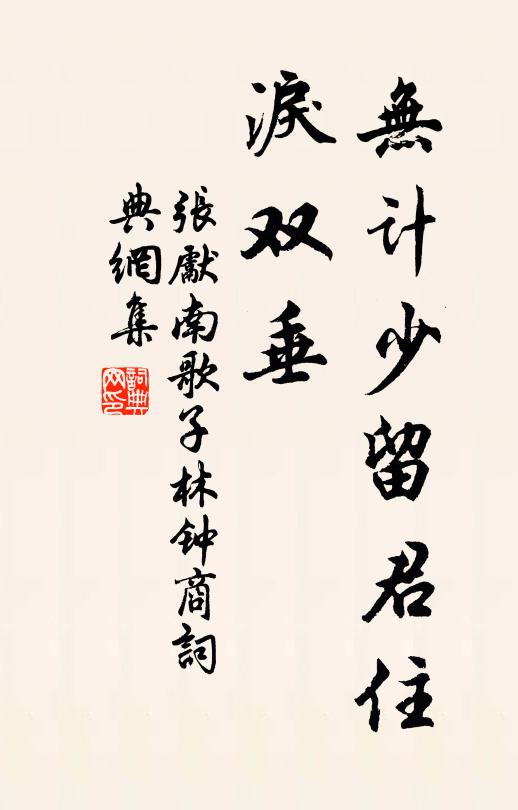 無计少留君住
淚双垂
張獻南歌子林钟商詞
典網集
詞典网印